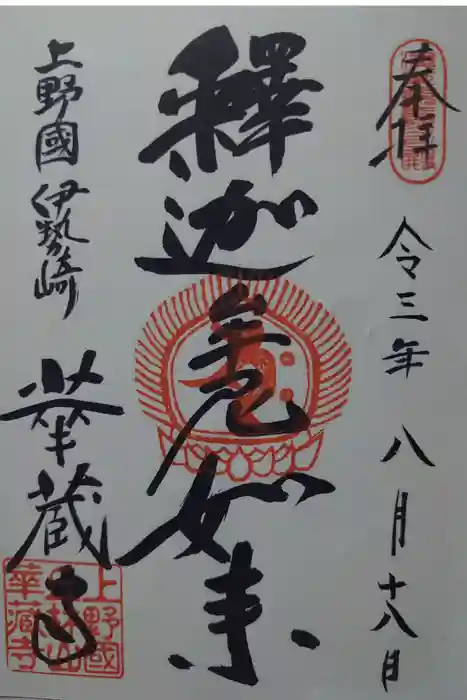 奉拝
令三年 八月十八日
釋迦無尼如来
上野國伊勢崎
華蔵寺
上野國
華蔵寺